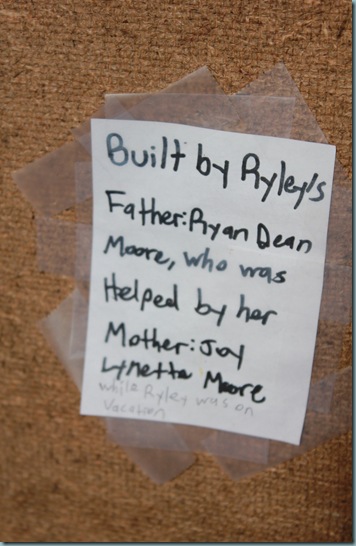 Built by Ryley's
Father: Ryan Dean
Moore, who was
Helped by her
Mother: Joy
Lynetta Moore
while Ryley was on
Vacation